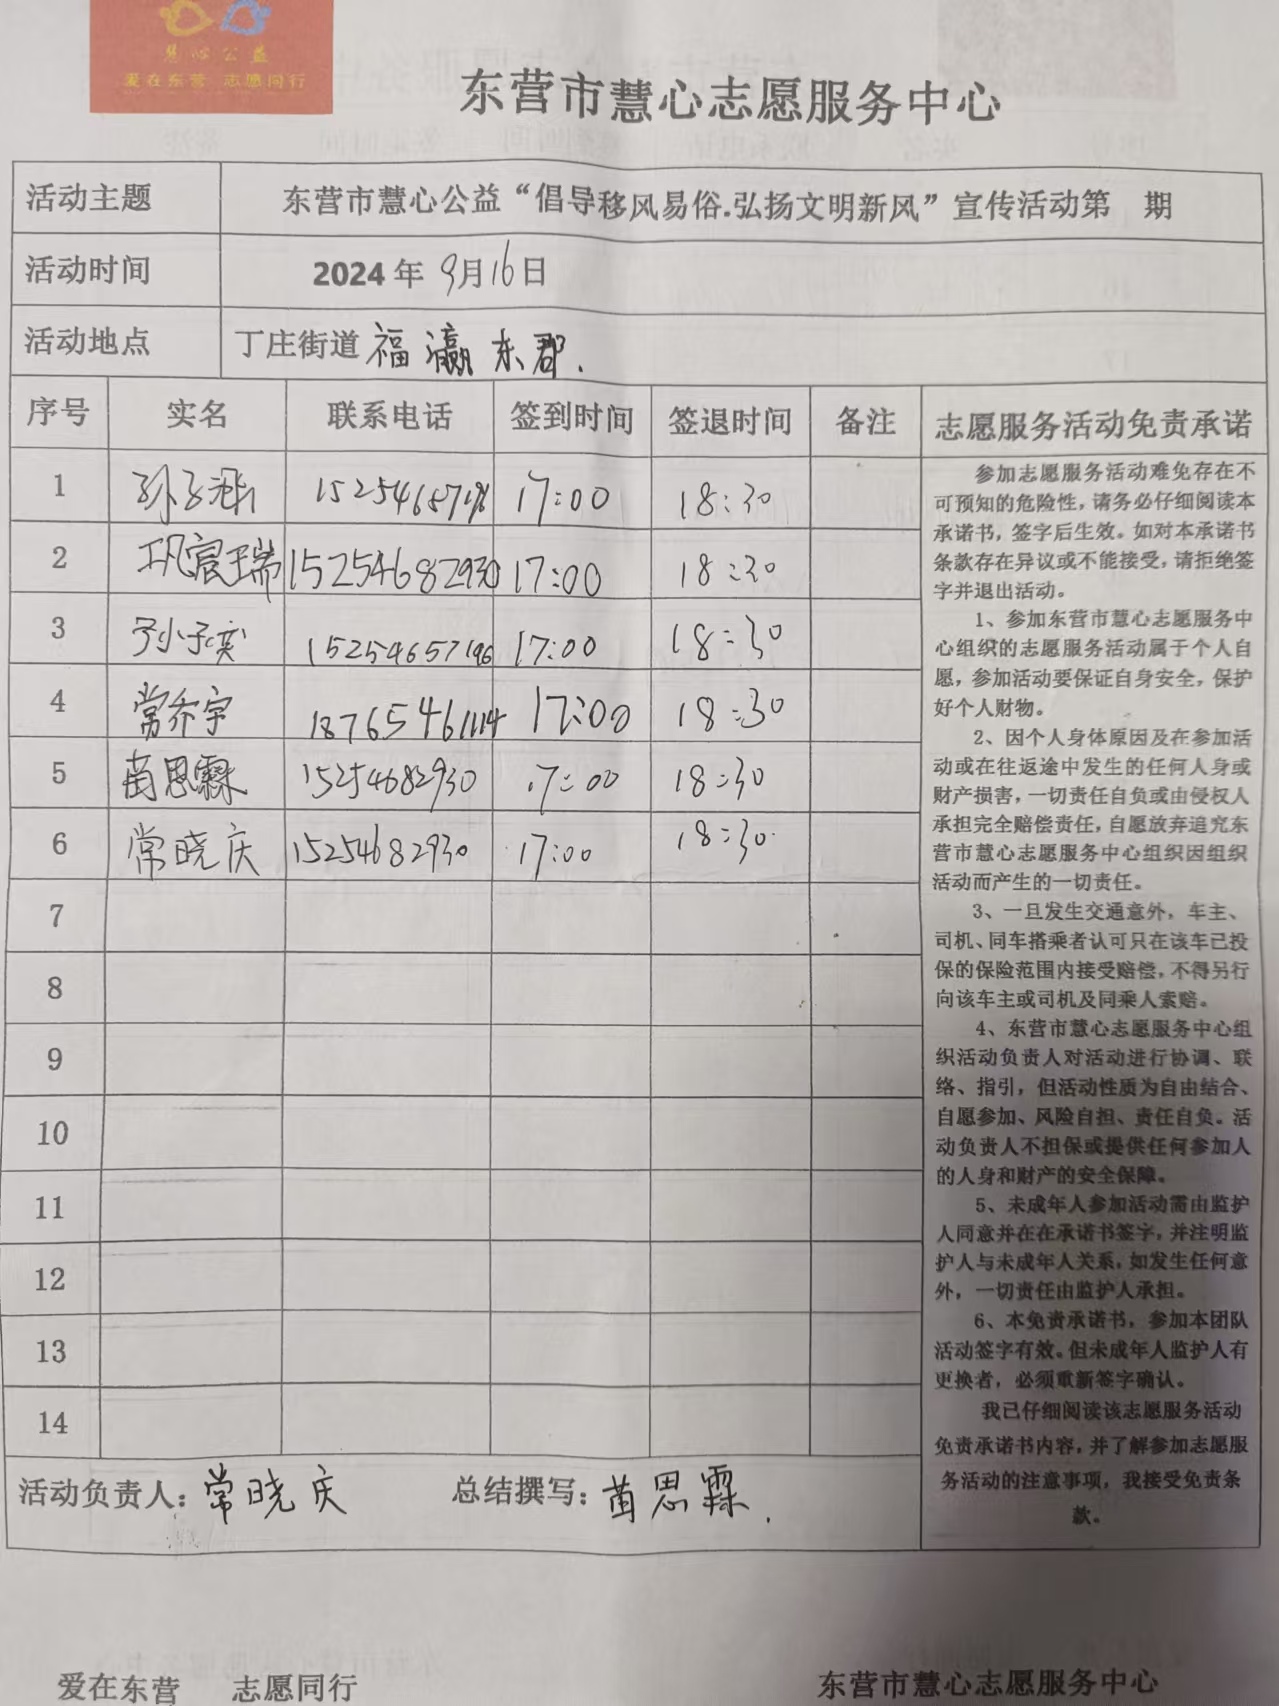 慧心公益
爱在东营 志愿同行
东营市慧心志愿服务中心
活动主题 东营市慧心公益“倡导移风易俗.弘扬文明新风”宣传活动第 期
活动时间 2024年9月16日
活动地点 丁庄街道福瀛东郡.
序号 实名 联系电话 签到时间 签退时间 备注 志愿服务活动免责承诺
1 17:00 18:30
2 15254682930 17:00 18:30
3 孙子奕 15254657196 17:00 18:30
4 常乔宇 18765461114 17:00 18:30
5 苗思霖 15254682930 17:00 18:30
6 常晓庆 15254682930 17:00 18:30
7
8
9
10
11
12
13
14
参加志愿服务活动难免存在不
可预知的危险性，请务必仔细阅读本
承诺书，签字后生效。如对本承诺书
条款存在异议或不能接受，请拒绝签
字并退出活动。
1、参加东营市慧心志愿服务中
心组织的志愿服务活动属于个人自
愿，参加活动要保证自身安全，保护
好个人财物。
2、因个人身体原因及在参加活
动或在往返途中发生的任何人身或
财产损害，一切责任自负或由侵权人
承担完全赔偿责任，自愿放弃追究东
营市慧心志愿服务中心组织因组织
活动而产生的一切责任。
3、一旦发生交通意外，车主、
司机、同车搭乘者认可只在该车已投
保的保险范围内接受赔偿，不得另行
向该车主或司机及同乘人索赔。
4、东营市慧心志愿服务中心组
织活动负责人对活动进行协调、联
络、指引，但活动性质为自由结合、
自愿参加、风险自担、责任自负。活
动负责人不担保或提供任何参加人
的人身和财产的安全保障。
5、未成年人参加活动需由监护
人同意并在在承诺书签字，并注明监
护人与未成年人关系，如发生任何意
外，一切责任由监护人承担。
6、本免责承诺书，参加本团队
活动签字有效。但未成年人监护人有
更换者，必须重新签字确认。
我已仔细阅读该志愿服务活动
免责承诺书内容，并了解参加志愿服
务活动的注意事项，我接受免责条
款。
活动负责人：常晓庆 总结撰写：苗思霖.
爱在东营 志愿同行 东营市慧心志愿服务中心